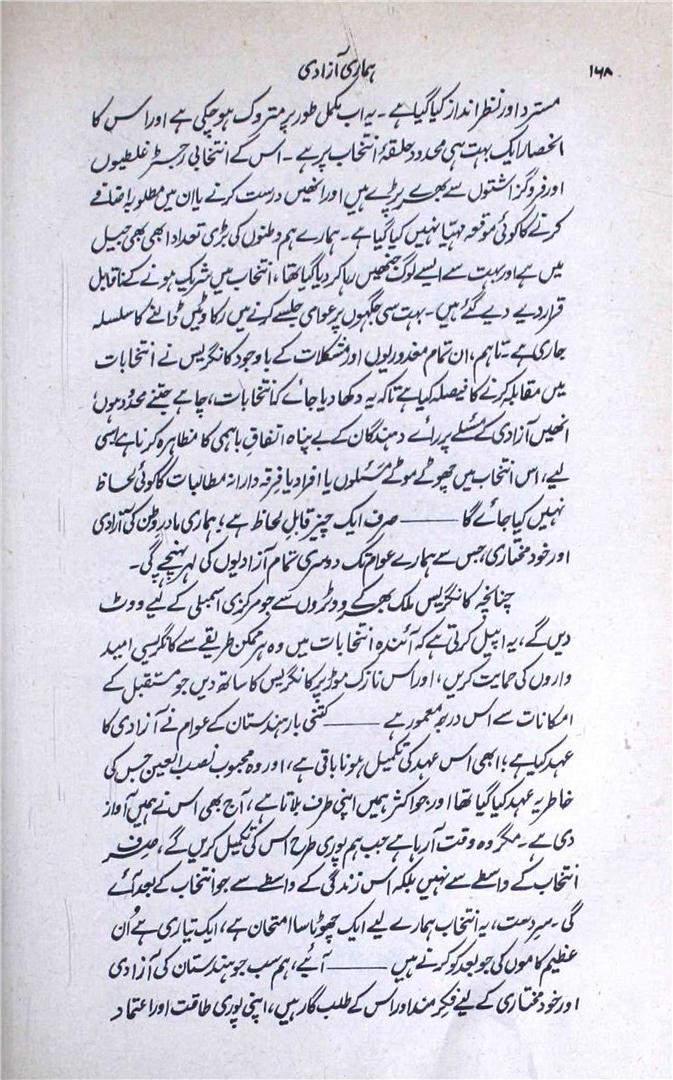 ہماری آزادی
۱۶۸
مسترد اور نظر انداز کیا گیا ہے۔ یہ اب مکمل طور پر متروک ہو چکی ہے اور اس کا
انحصار ایک بہت ہی محدود حلقۂ انتخاب پر ہے۔ اس کے انتخابی رجسٹر غلطیوں
اور فروگزاشتوں سے بھرے پڑے ہیں اور انھیں درست کرنے یا ان میں مطلوبہ اضافے
کرنے کا کوئی موقعہ مہیّا نہیں کیا گیا ہے۔ ہمارے ہم وطنوں کی بڑی تعداد ابھی بھی جیل
میں ہے اور بہت سے ایسے لوگ جنھیں رہا کر دیا گیا تھا، انتخاب میں شریک ہونے کے ناقابل
قرار دیے دیے گئے ہیں۔ بہت سی جگہوں پر عوامی جلسے کرنے میں رکاوٹیں ڈالنے کا سلسلہ
جاری ہے۔ تاہم، ان تمام معذوریوں اور مشکلات کے باوجود کانگریس نے انتخابات
میں مقابلہ کرنے کا فیصلہ کیا ہے تاکہ یہ دکھا دیا جائے کہ انتخابات، چاہے جتنے محدود ہوں
انھیں آزادی کے مسئلے پر رائے دہندگان کے بے پناہ اتفاقِ باہمی کا مظاہرہ کرنا ہے اسی
لیے، اس انتخاب میں چھوٹے موٹے مسئلوں یا افراد یا فرقہ دارانہ مطالبات کا کوئی لحاظ
نہیں کیا جائے گا ——— صرف ایک چیز قابلِ لحاظ ہے؛ ہماری مادرِ وطن کی آزادی
اور خود مختاری، جس سے ہمارے عوام تک دوسری تمام آزادیوں کی لہر پہنچے گی۔
چنانچہ کانگریس ملک بھر کے ووٹروں سے جو مرکزی اسمبلی کے لیے ووٹ
دیں گے، یہ اپیل کرتی ہے کہ آئندہ انتخابات میں وہ ہر ممکن طریقے سے کانگریسی امید
واروں کی حمایت کریں، اور اس نازک موڑ پر کانگریس کا ساتھ دیں جو مستقبل کے
امکانات سے اس درجہ معمور ہے ——— کتنی بار ہندستان کے عوام نے آزادی کا
عہد کیا ہے؛ ابھی اس عہد کی تکمیل ہونا باقی ہے، اور وہ محبوب نصب العین جس کی
خاطر یہ عہد کیا گیا تھا اور جو اکثر ہمیں اپنی طرف بلاتا ہے، آج بھی اس نے ہمیں آواز
دی ہے۔ مگر وہ وقت آ رہا ہے جب ہم پوری طرح اس کی تکمیل کریں گے، صرف
انتخاب کے واسطے سے نہیں بلکہ اس زندگی کے واسطے سے جو انتخاب کے بعد آئے
گی۔ سرِدست، یہ انتخاب ہمارے لیے ایک چھوٹا سا امتحان ہے، ایک تیاری ہے اُن
عظیم کاموں کی جو بعد کو کرنے ہیں ——— آئیے، ہم سب جو ہندستان کی آزادی
اور خود مختاری کے لیے فکر مند اور اس کے طلب گار ہیں، اپنی پوری طاقت اور اعتماد